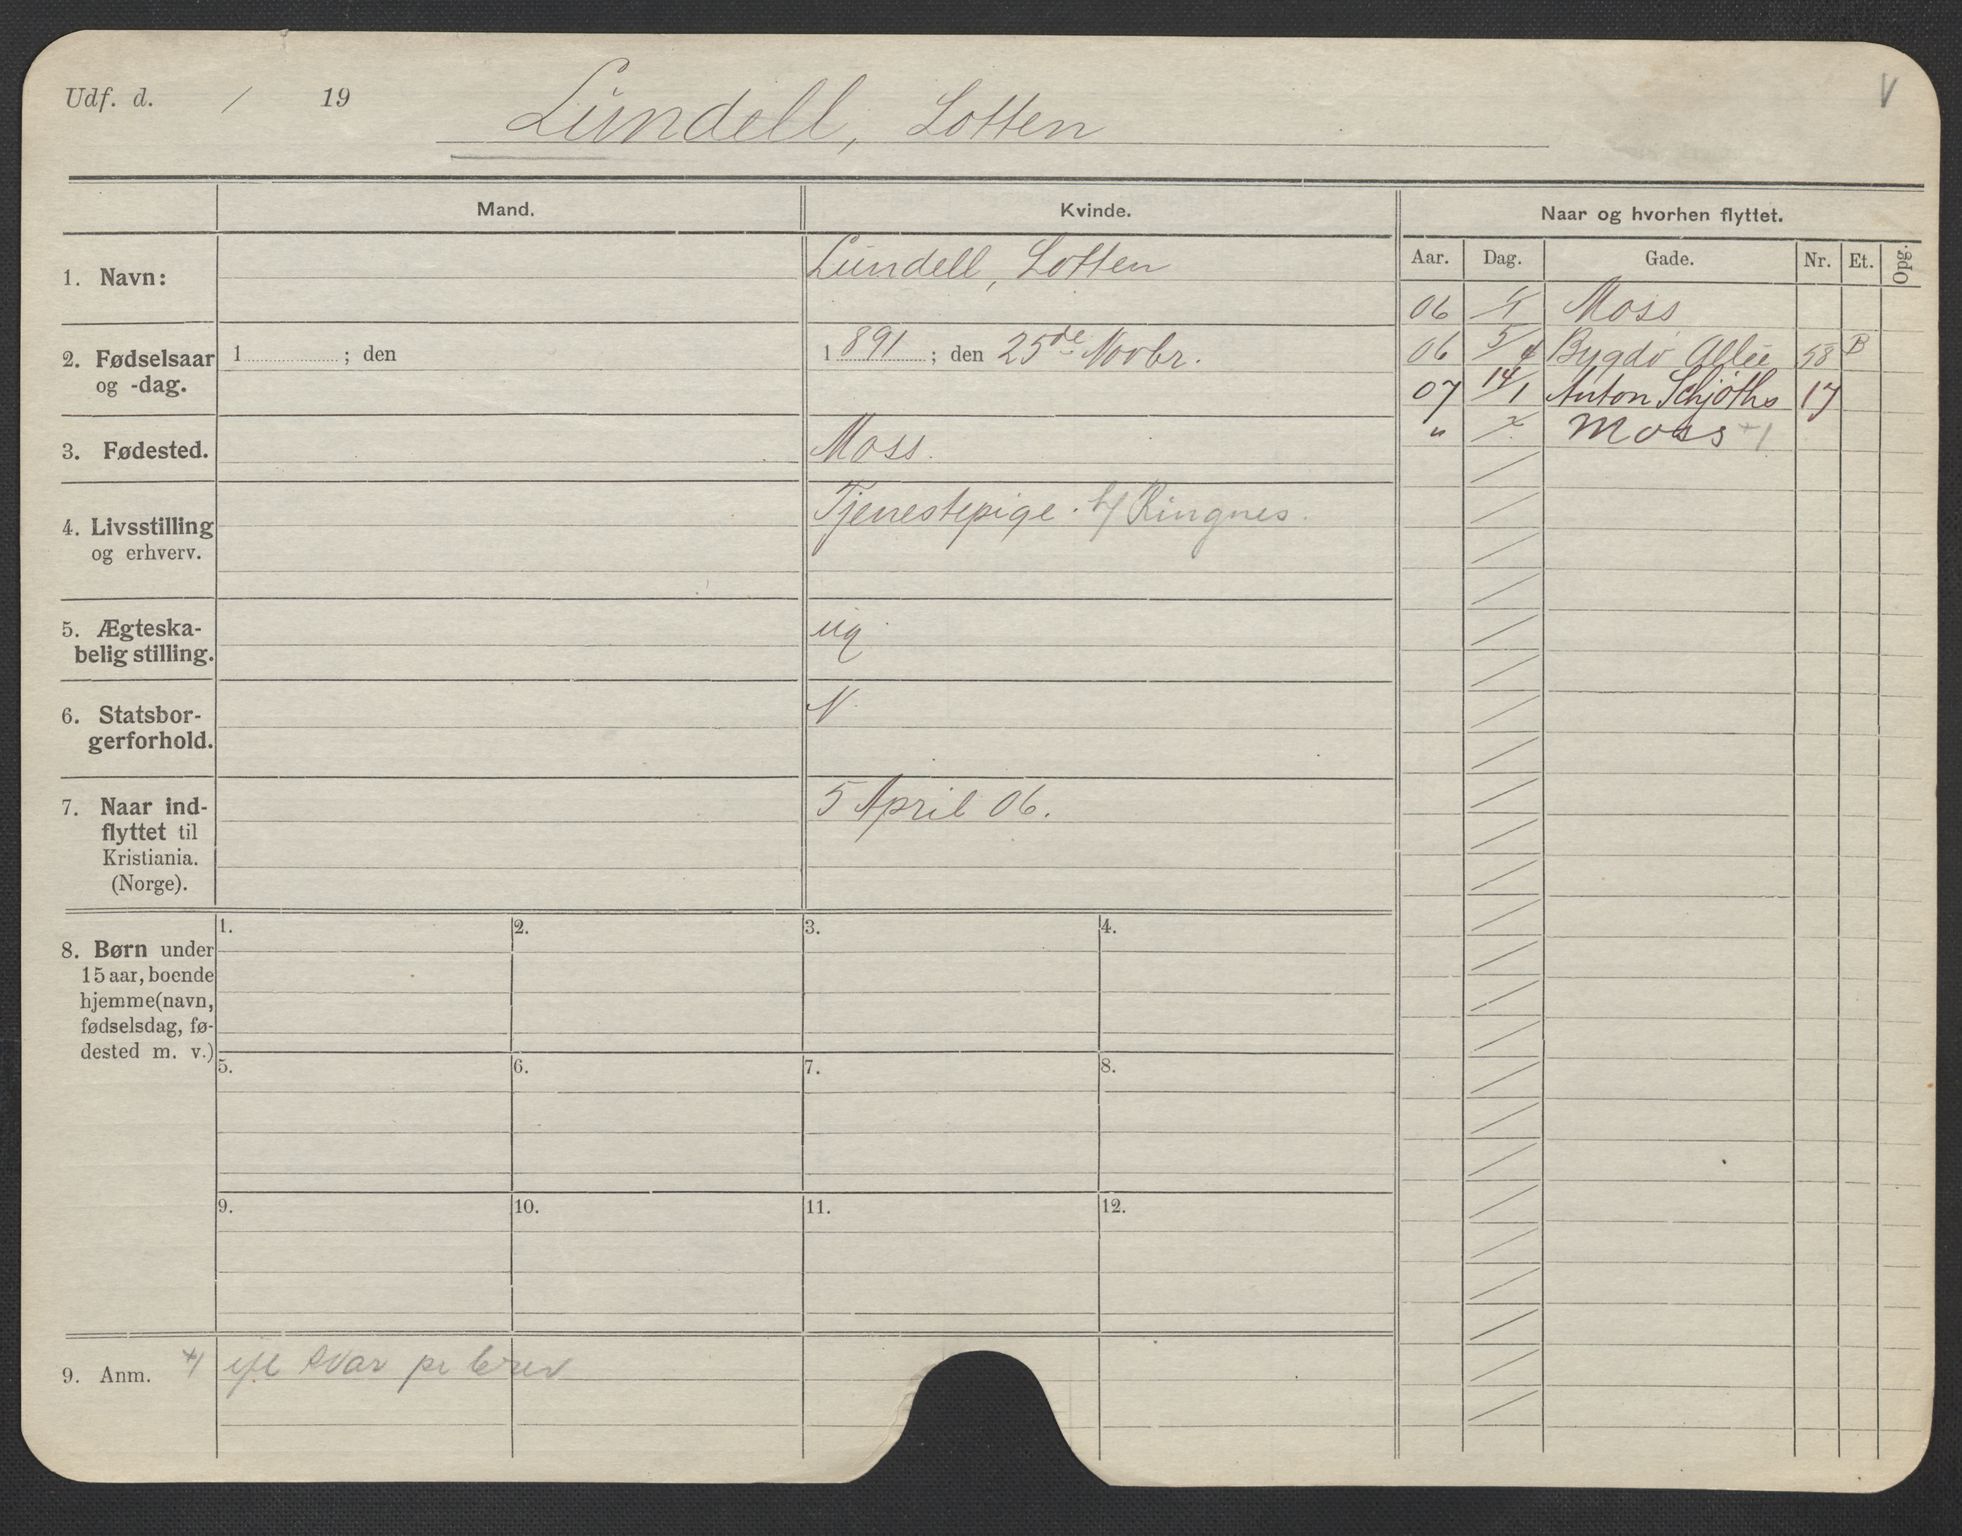 Udf. d. / 19
Lundell, Lotten
V
Mand.
Kvinde.
Naar og hvorhen flyttet.
Aar. Dag. Gade. Nr. Et. Opg.
1. Navn:
Lundell, Lotten
2. Fødselsaar
og -dag.
1 ; den
1 891 ; den 25de Novbr.
3. Fødested.
Moss.
4. Livsstilling
og erhverv.
Tjenestepige. h/ Ringnes.
5. Ægteska-
belig stilling.
ug
6. Statsbor-
gerforhold.
N
7. Naar ind-
flyttet til
Kristiania.
(Norge).
5 April 06.
06 Moss
06 5/4 Bygdø Allée 58 B
07 14/1 Anton Schjøths 17
" Moss +/
8. Børn under
15 aar, boende
hjemme (navn,
fødselsdag, fø-
dested m. v.)
1. 2. 3. 4.
5. 6. 7. 8.
9. 10. 11. 12.
9. Anm. +/ eft svar pr brev